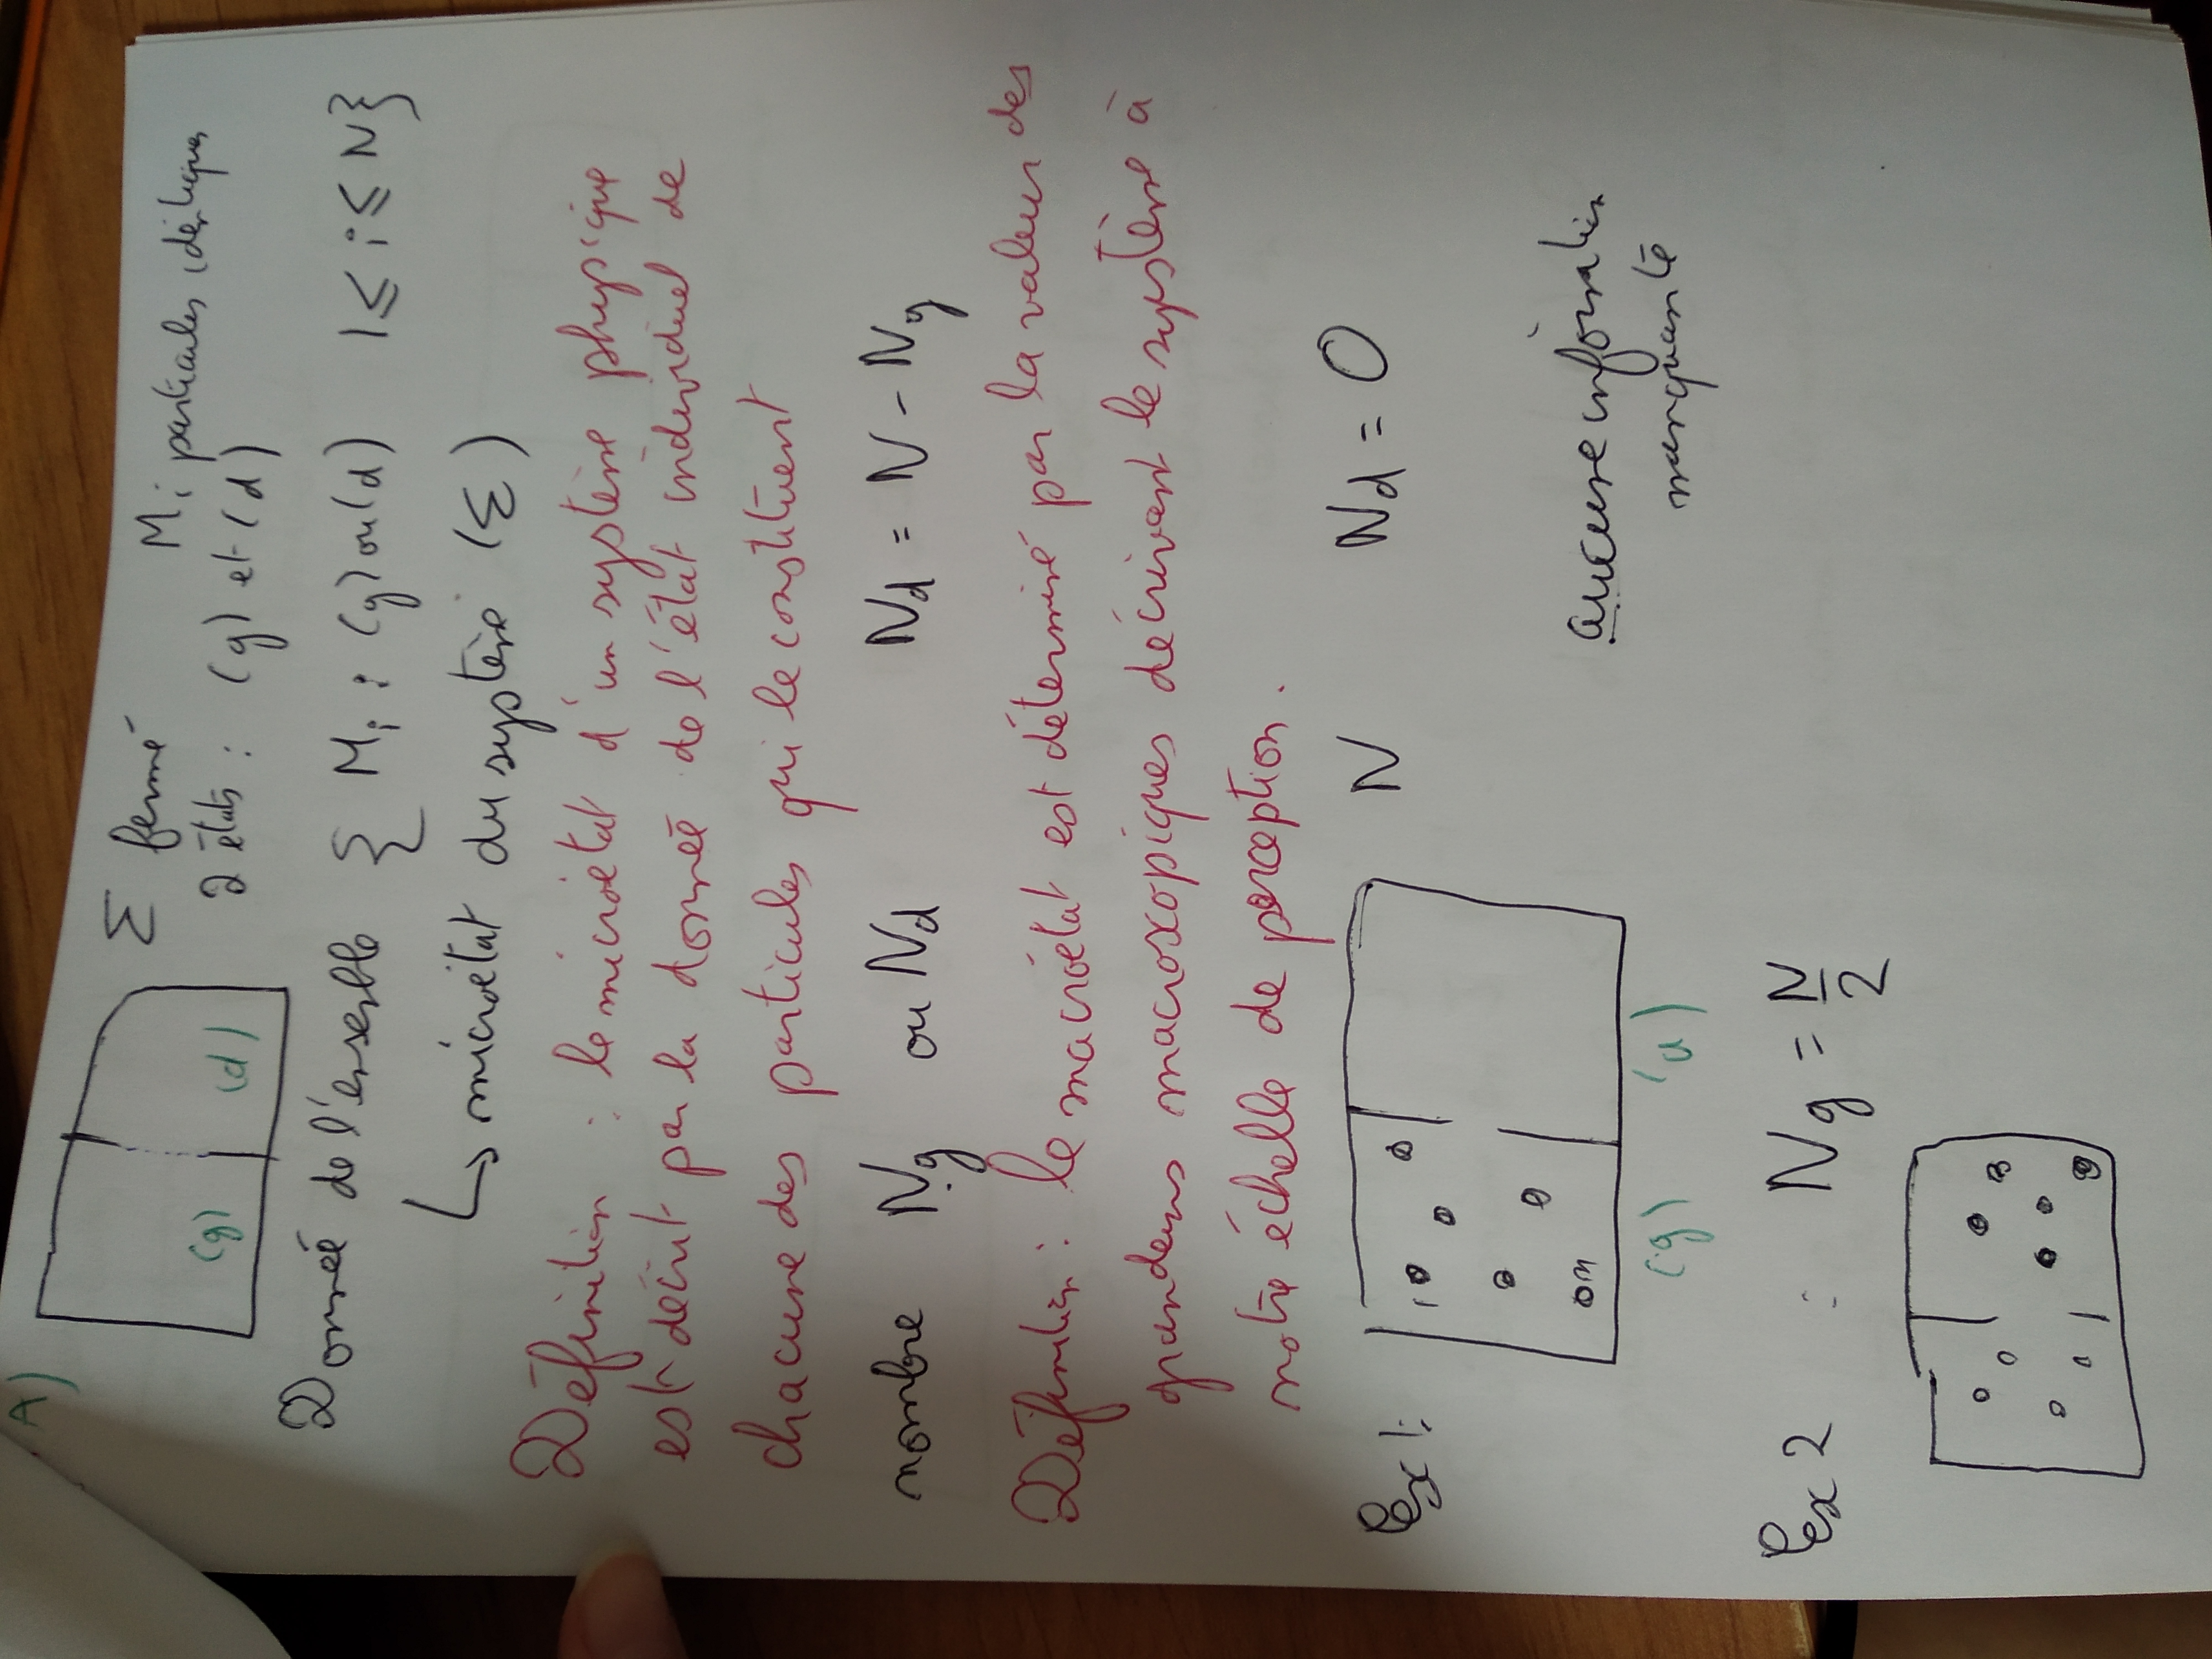 A)
Σ fermé Mi particules identiques
2 états : (g) et (d)
(g) (d)
Donnée de l'ensemble { Mi : (g) ou (d) 1 ≤ i ≤ N }
↳ microétat du système (Σ)
Définition : le microétat d'un système physique
est décrit par la donnée de l'état individuel de
chacune des particules qui le constituent
nombre Ng ou Nd Nd = N - Ng
Définition : le macroétat est déterminé par la valeur des
grandeurs macroscopiques décrivant le système à
notre échelle de perception.
Ex 1: N Nd = 0
(g) (d)
aucune information
manquante
Ex 2 : Ng = N/2